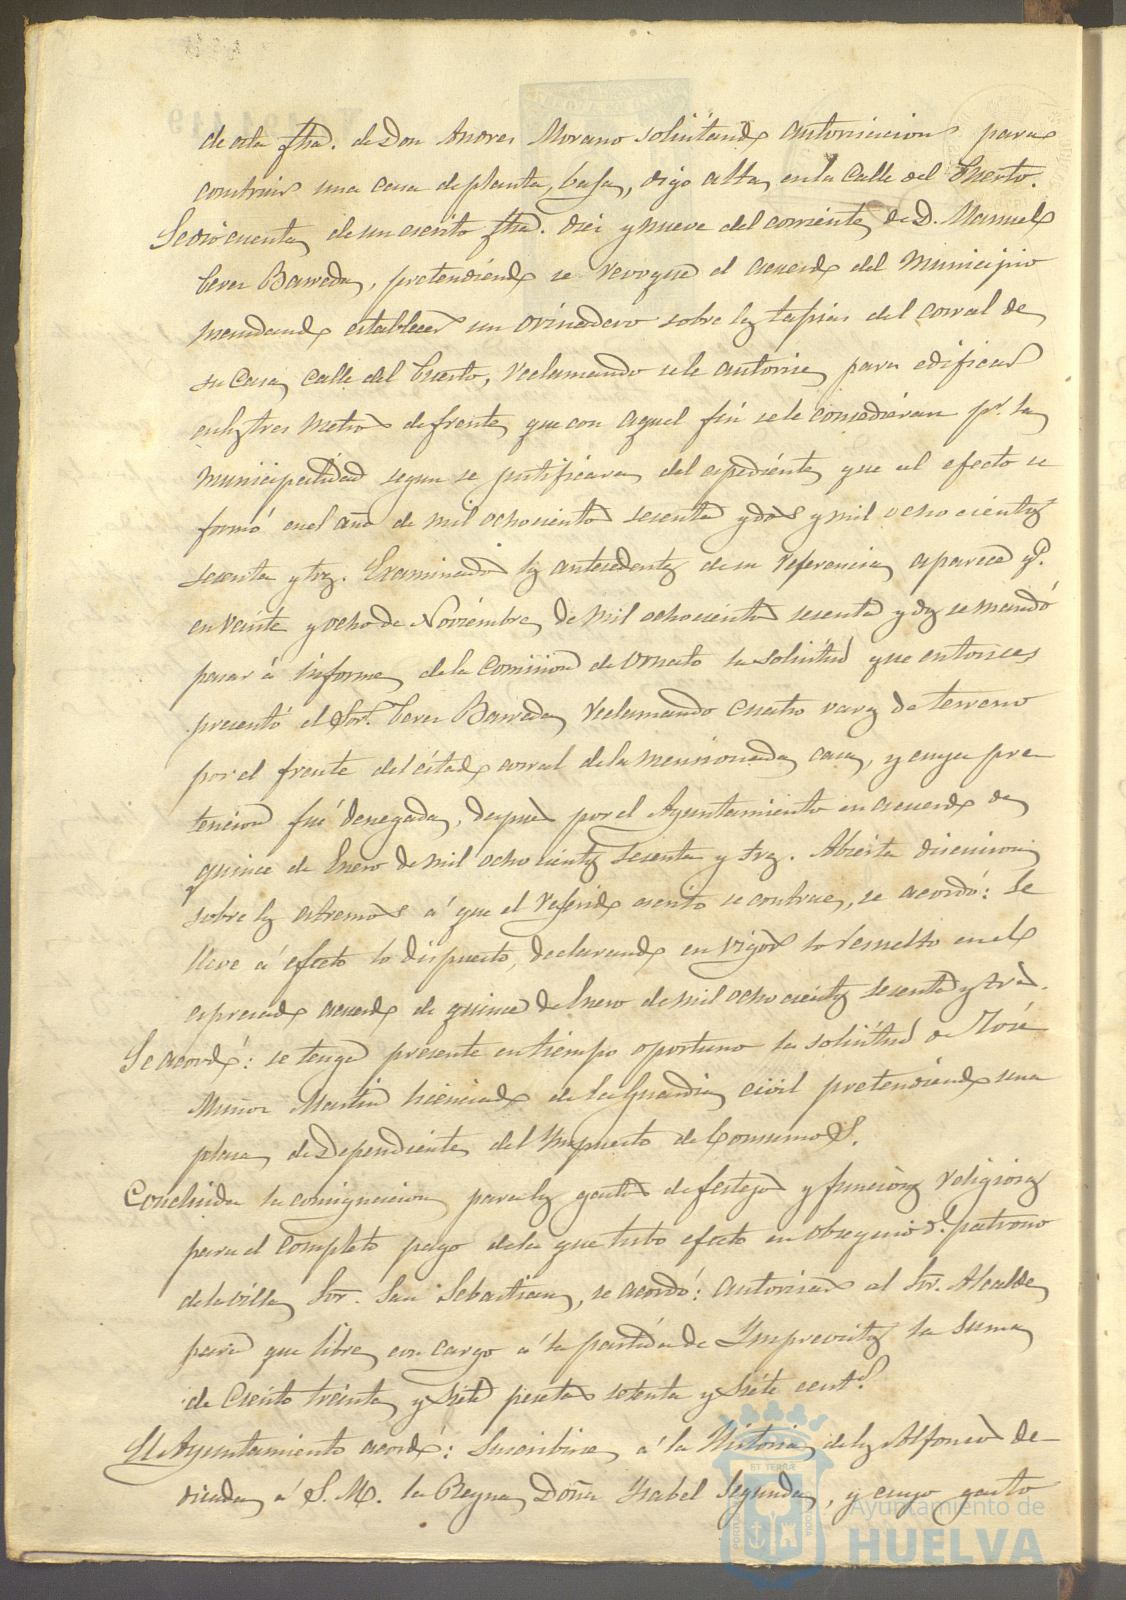 de esta fha. de Don Andres Morano solicitando autorizacion para
construir una casa de planta, baja, digo alta, en la Calle del Puerto.
Se dió cuenta de un escrito fha. diez y nueve del corriente, de D. Manuel
Perez Barreda, pretendiendo se revoque el acuerdo del Municipio
mandando establecer un orinadero sobre las tapias del corral de
su Casa, calle del Puerto, reclamando se le autorice, para edificar
en los tres metros de frente, que con aquel fin se le concedieran pr. la
Municipalidad segun se justificara del espediente, que al efecto se
formó en el año de mil ochocientos sesenta y dos y mil ochocientos
sesenta y tres. Examinados los antecedentes de su referencia, aparece q.
en veinte y ocho de Noviembre, de mil ochocientos sesenta y dos se mandó
pasar á informe de la Comision de Ornato la solicitud que entonces
presentó el Sor. Perez Barreda, reclamando cuatro varas de terreno
por el frente del citado corral de la mencionada casa, y cuya pre-
tencion fué denegada, despues por el Ayuntamiento en acuerdo de
quince de Enero de mil ochocientos sesenta y tres. Abierta discusion
sobre los estremos á que el referido escrito se contrae, se acordó: Se
lleve á efecto lo dispuesto, declarando en vigor lo resuelto en el
espresado acuerdo de quince de Enero de mil ochocientos sesenta y tres.
Se acordó: se tenga presente en tiempo oportuno la solicitud de José
Muñoz Martin licenciado de la Guardia civil pretendiendo una
plaza de Dependiente del Ympuesto de Consumos.
Concluida la consignacion para los gastos de festejos y funciones religiosas
para el completo pago de la que tubo efecto en obsequio dl. patrono
de la villa, Sor. San Sebastian, se acordó: autorizar al Sor. Alcalde,
para que libre, con cargo á la partida de Ymprevistos la suma
de Ciento treinta y siete pesetas setenta y siete cents.
El Ayuntamiento acordó: Suscribirse á la Historia de los Alfonsos de-
dicada á S. M. la Reyna Doña Ysabel Segunda, y cuyo gasto
Ayuntamiento de
HUELVA